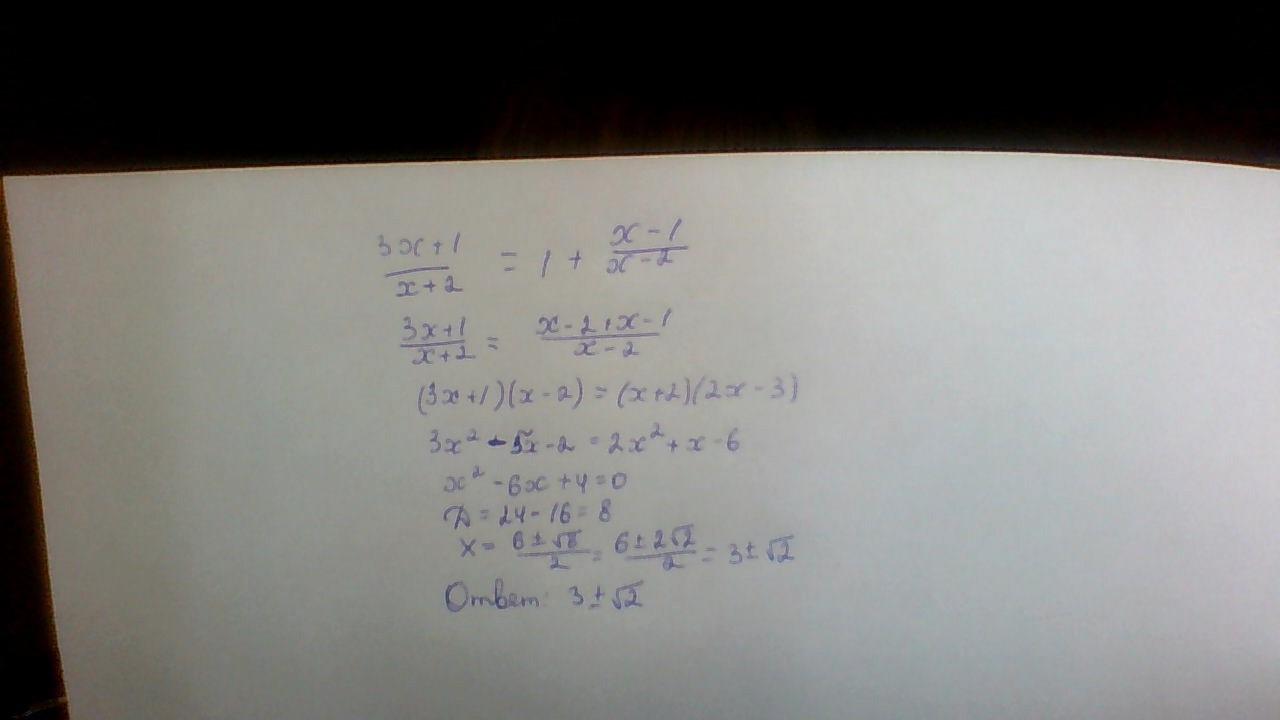 3x+1/x+2 = 1 + x-1/x-2
3x+1/x+2 = x-2+x-1/x-2
(3x+1)(x-2)=(x+2)(2x-3)
3x²-5x-2=2x²+x-6
x²-6x+4=0
D=24-16=8
x= 6±√8/2 = 6±2√2/2 = 3±√2
Ответ: 3±√2